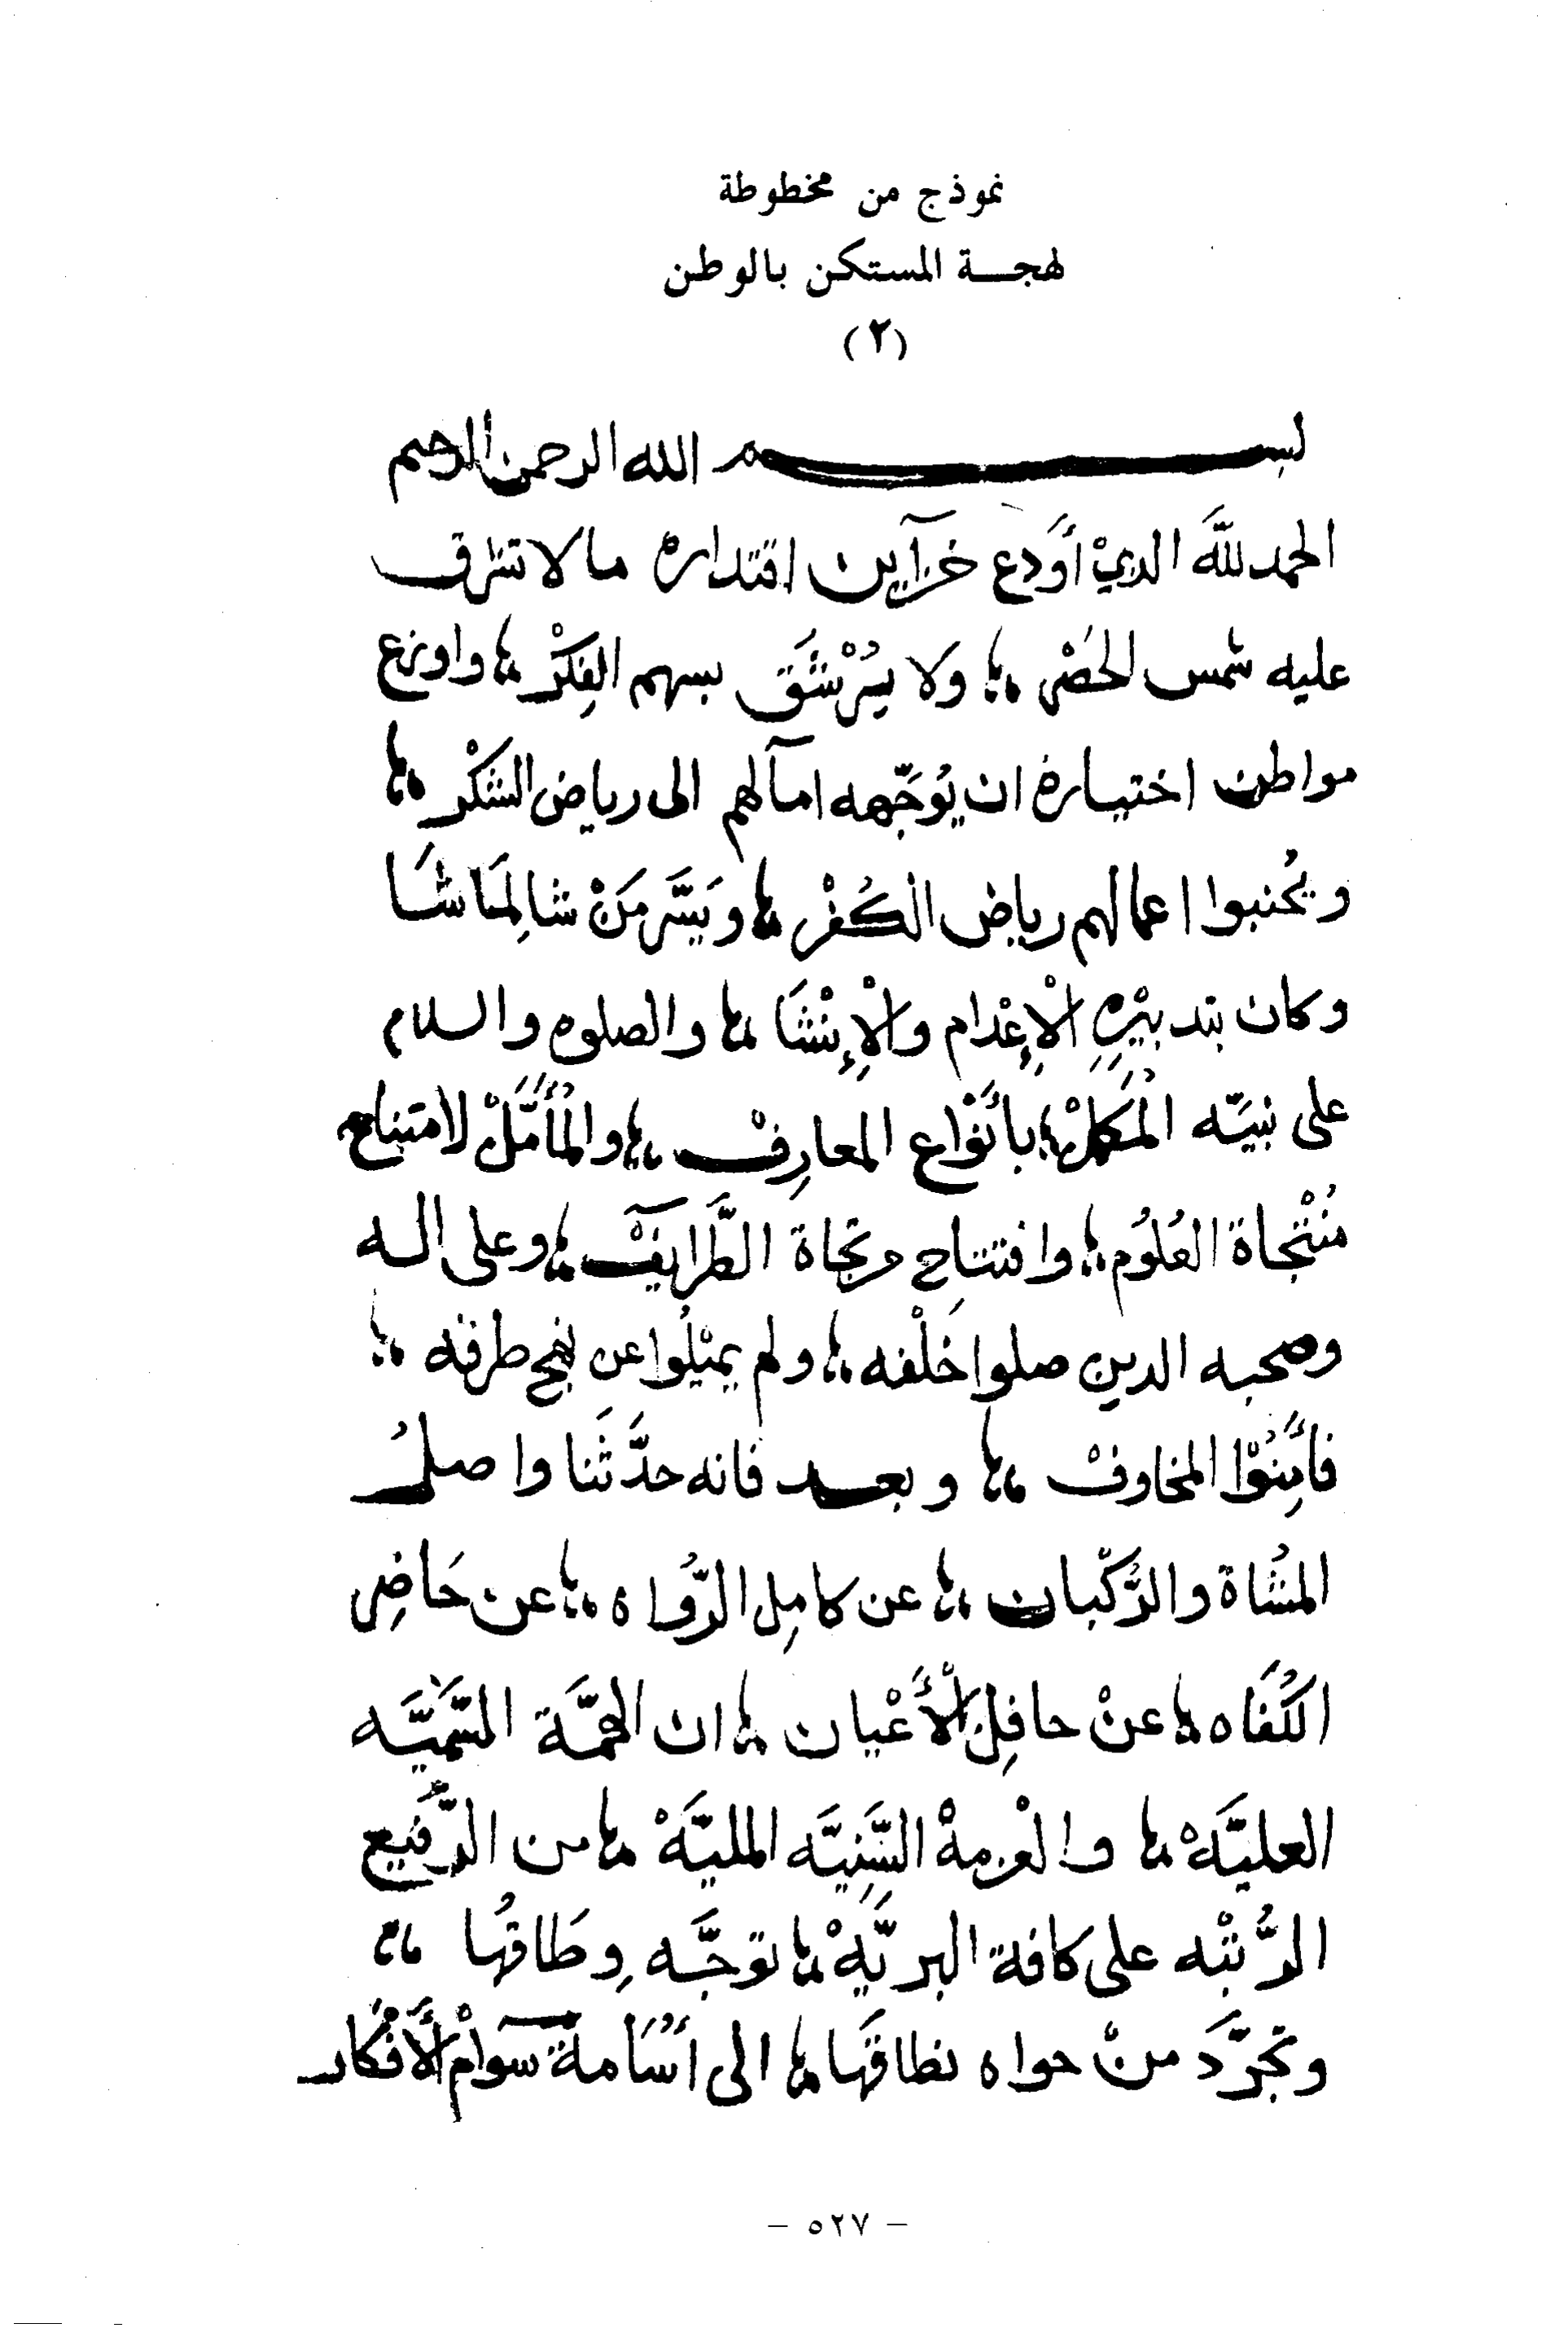 نموذج من مخطوطة
لهجة المستكن بالوطن
(٢)
بسم الله الرحمن الرحيم
الحمد للَّه الديْ أوَدع خزآين اقتداره ما لا تشرق
عليه شمس الحَصْر ؛ ولا يُرْشَق بسهم الفِكْر ؛ واوزع
مواطن اختياره ان يُوَجّهه امآلهم الى رياض الشكْر ؛
ويُجنبوا اعمالهم رياض الكُفْر ؛ ويَسَّر مَنْ شا لِمَا شَا
وكان بتدبيْرِهِ الْإِعْدام والْإِنْشَا ؛ والصلوه والسلام
على نبيَّه المُكَمل ؛ بأنَوْاع المعارِفْ ؛ والمُأَمَّلْ لامتناح
مُنْتجاة العُلُوم ؛ وافتتاح مرتجاة الطَّرايَفْ ؛ وعلى اله
وصحبه الدين صلوا خَلْفه ؛ ولم يميْلُوا عن نهج طرفه ؛
فأَمِنُوْا المخاوفْ ؛ وبعد فانه حدَّثَنا واصلُ
المشُاة والرُّكْبان ؛ عن كامِل الرُّوَاه ؛ عن حَاضِر
الكُفَاه ؛ عنْ حافِل الْأَعْيان ؛ ان الهمَّة السَّميَّه
العليَّهْ ؛ والْعزمهْ السَّنِيَّه المليَّهْ ؛ من الرَّفيع
الرُّتبْه على كافة البريَّهْ ؛ توجَّه وِطَاقهُا ؛
وتجرَّدَ منْ حواه نطاقهَا ؛ الى أسَامة سوآمْ الْأَفْكار
- ٥٢٧ -